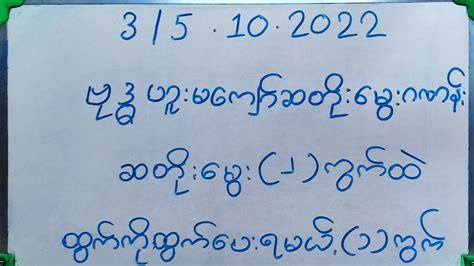 3 / 5 . 10 . 2022
ဗုဒ္ဓဟူးမကျော်ဆတိုးမွေးဂဏန်း
ဆတိုးမွေး (၂) ကွက်ထဲ
ထွက်ကိုထွက်ပေးရမယ့် (၁) ကွက်